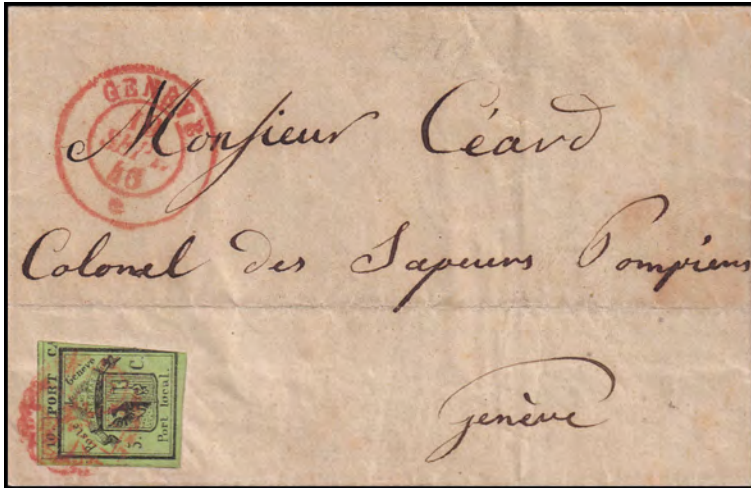 GENÈVE
SEPT.
46
Monsieur Céard
Colonel des Sapeurs Pompiens
genève
10 PORT CA
Poste de Genève
5 C
Port local.